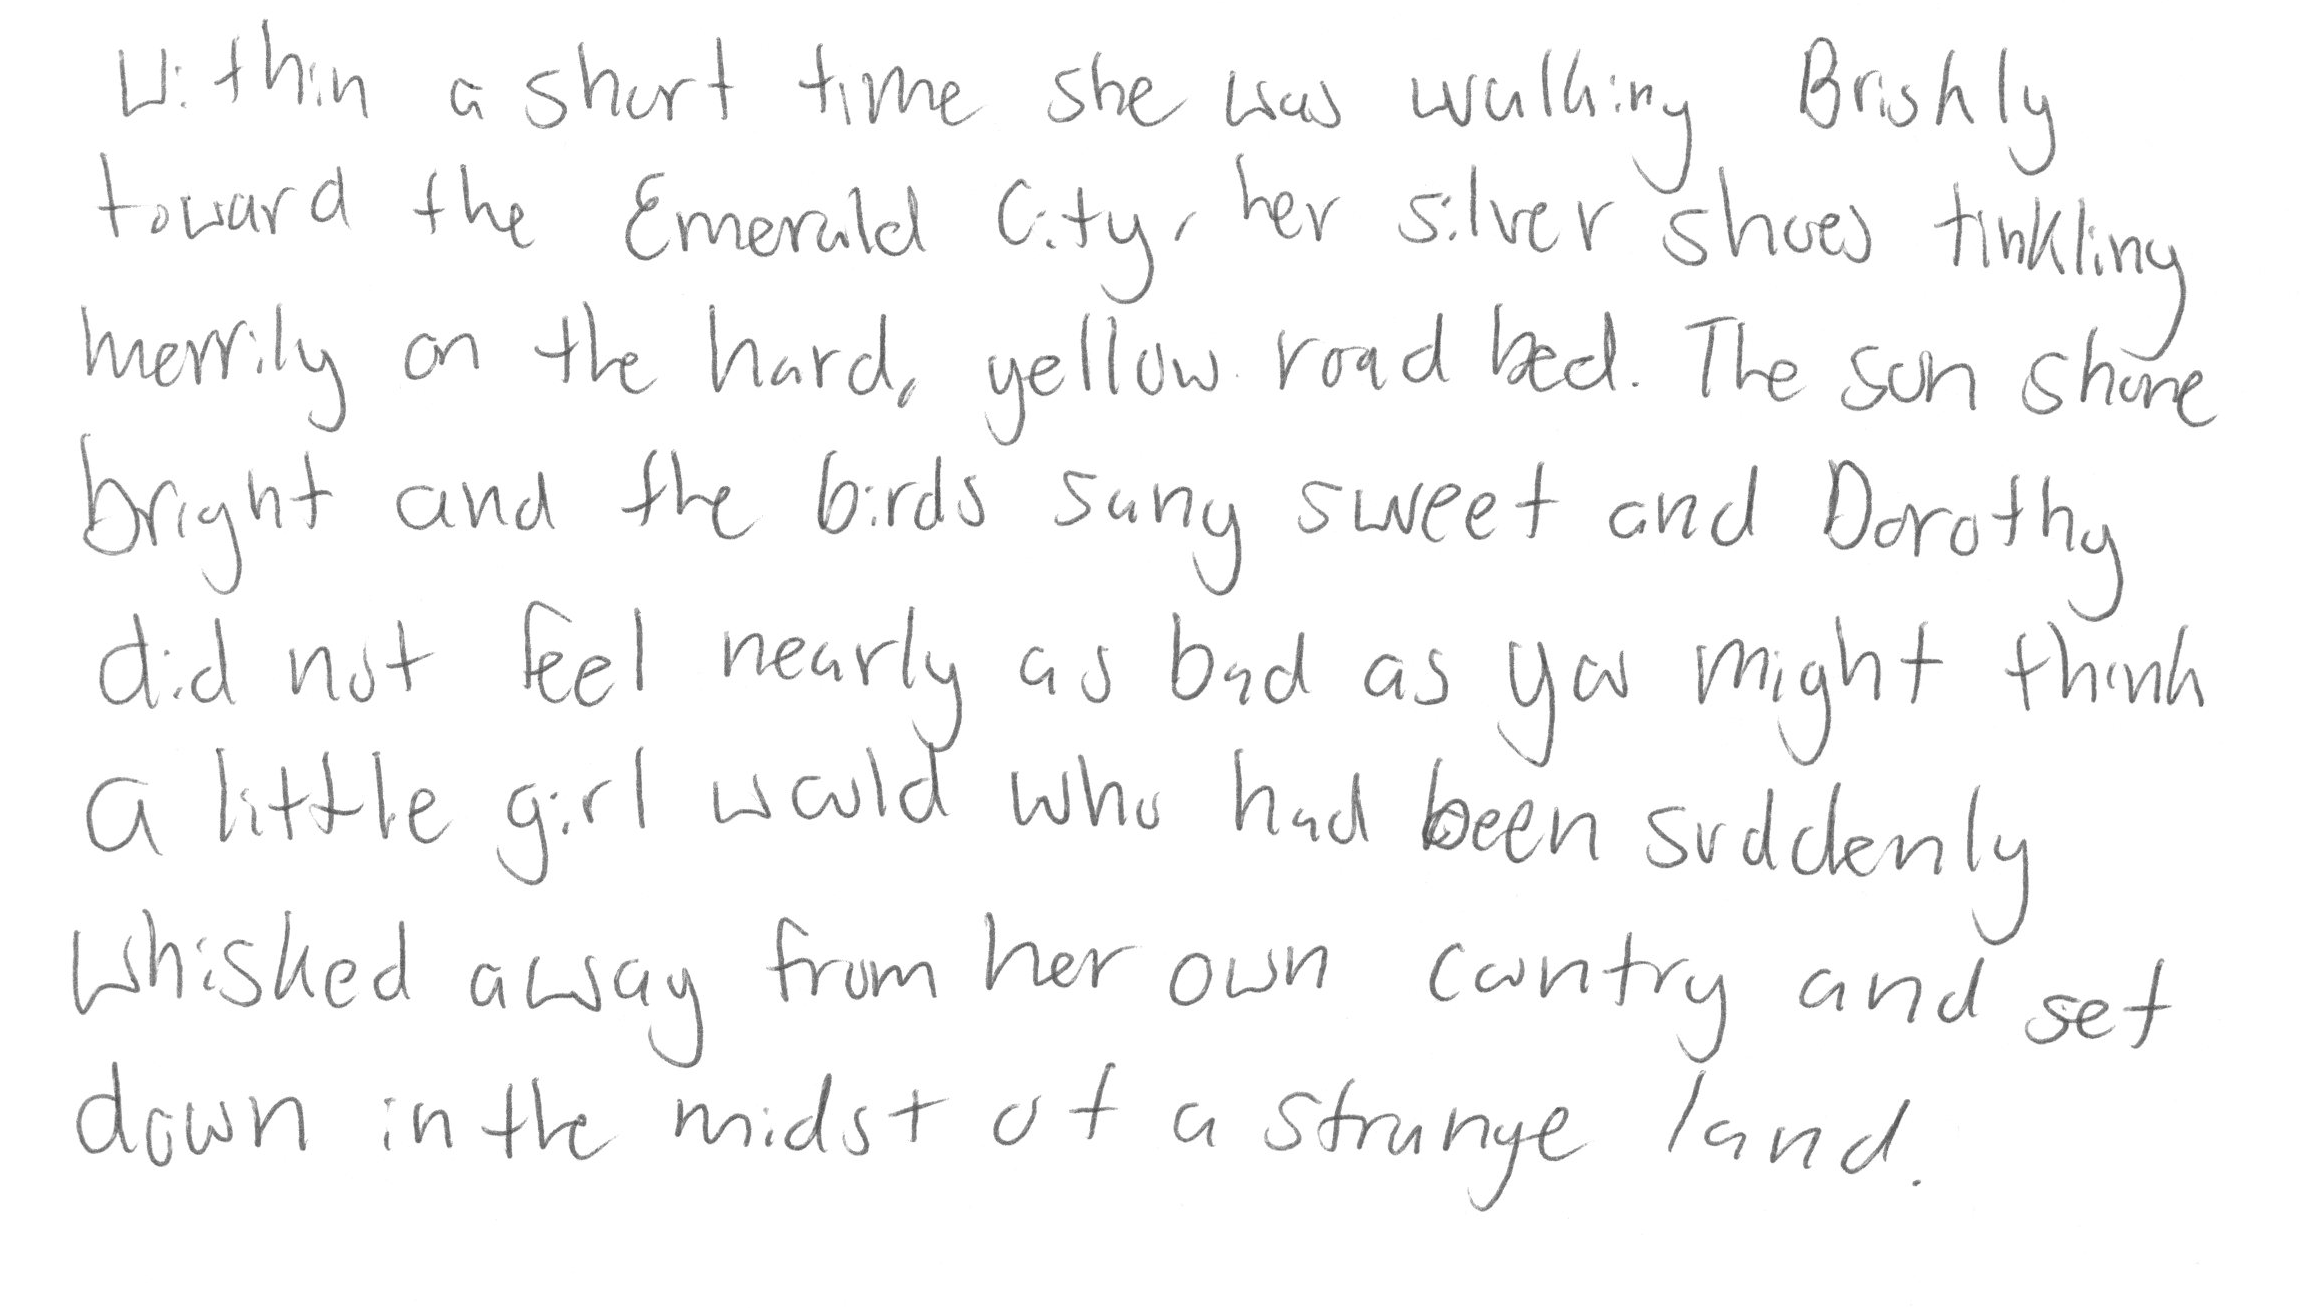 Within a short time she was walking Briskly
toward the Emerald City, her silver shoes tinkling
merrily on the hard, yellow road bed. The sun shone
bright and the birds sang sweet and Dorothy
did not feel nearly as bad as you might think
a little girl would who had been suddenly
whisked away from her own country and set
down in the midst of a strange land.